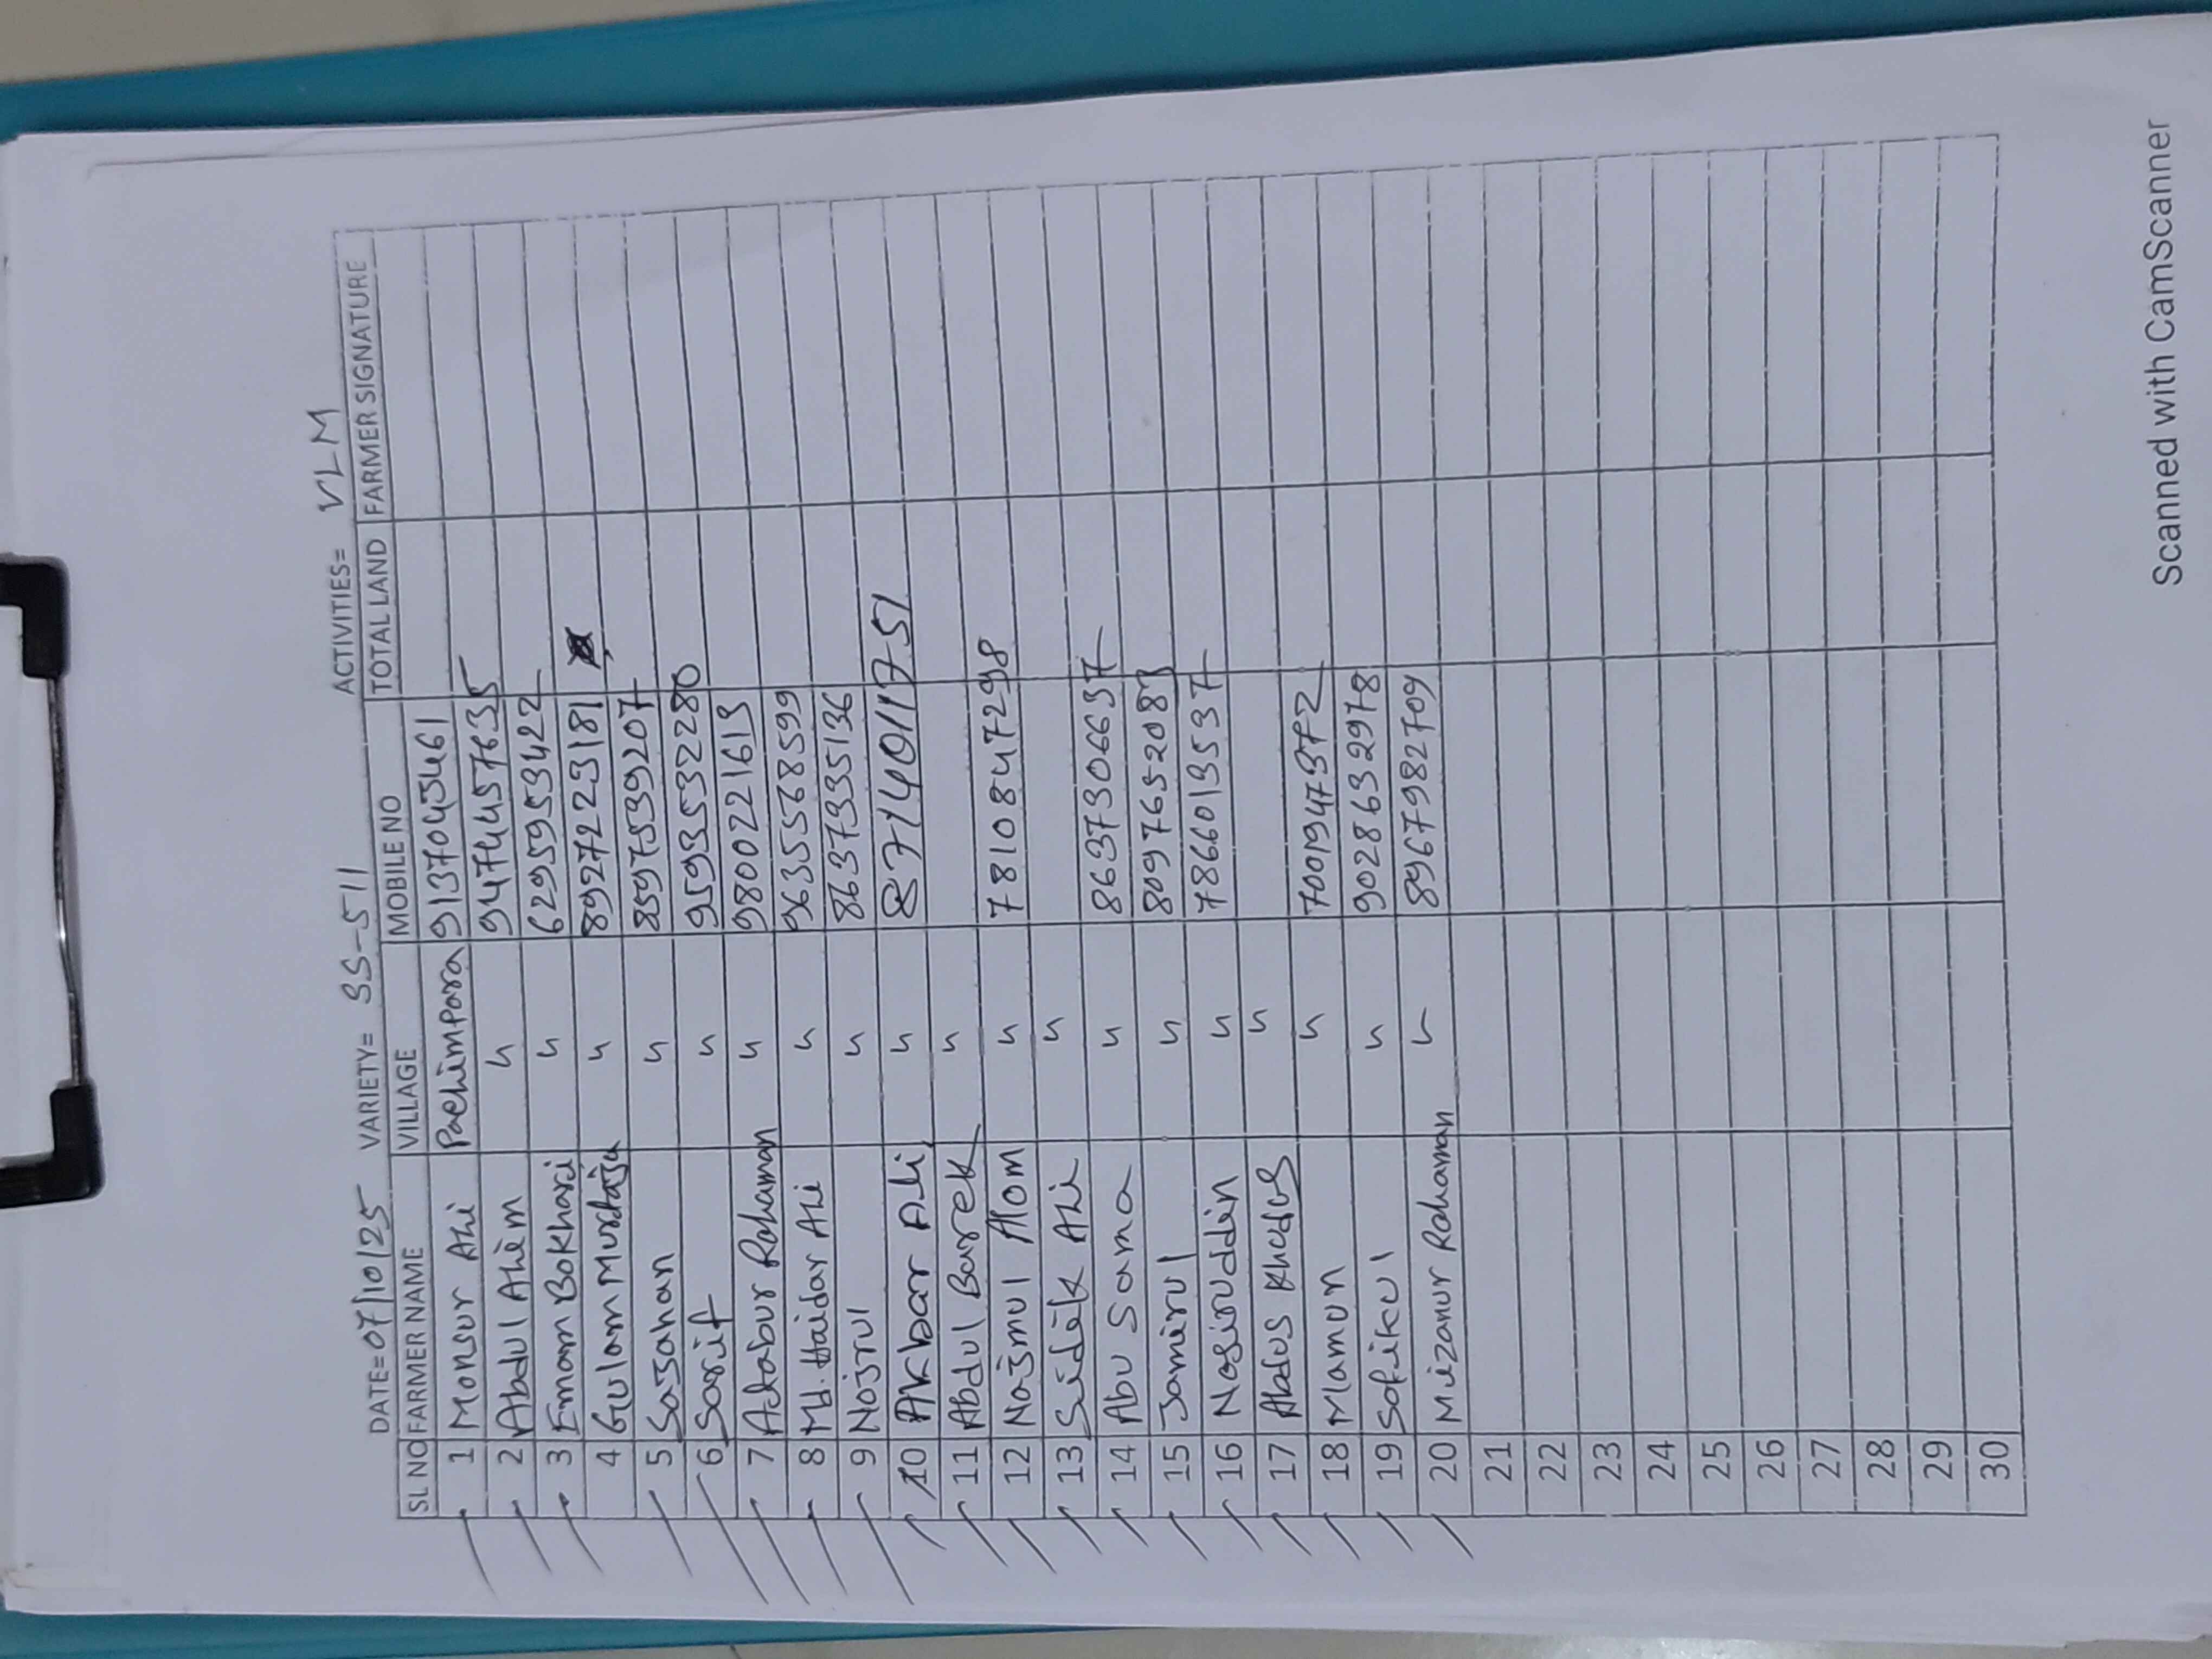 DATE=07/10/25 VARIETY= SS-511 ACTIVITIES= VLM
SL NO FARMER NAME VILLAGE MOBILE NO TOTAL LAND FARMER SIGNATURE
1 Monsur Ali Pachimpara 9137043461
2 Abdul Ahim " 9474457635
3 Emam Bokhari " 6295953422
4 Gulam Murtaja " 8927223181
5 Sajahan " 8597539207
6 Sarif " 9593532280
7 Atabur Rahaman " 9800221613
8 Md. Haidar Ali " 9635568599
9 Nojrul " 8637335136
10 Akbar Ali "
11 Abdul Barek "
12 Najmul Alom " 7810847298
13 Sidik Ali "
14 Abu Sama " 8637306637
15 Jamirul " 8097652083
16 Nasiruddin " 7866013537
17 Abdus Khudus "
18 Mamun "
19 Sofikul " 9028632978
20 Mizanur Rahaman " 8967982709
21
22
23
24
25
26
27
28
29
30
Scanned with CamScanner